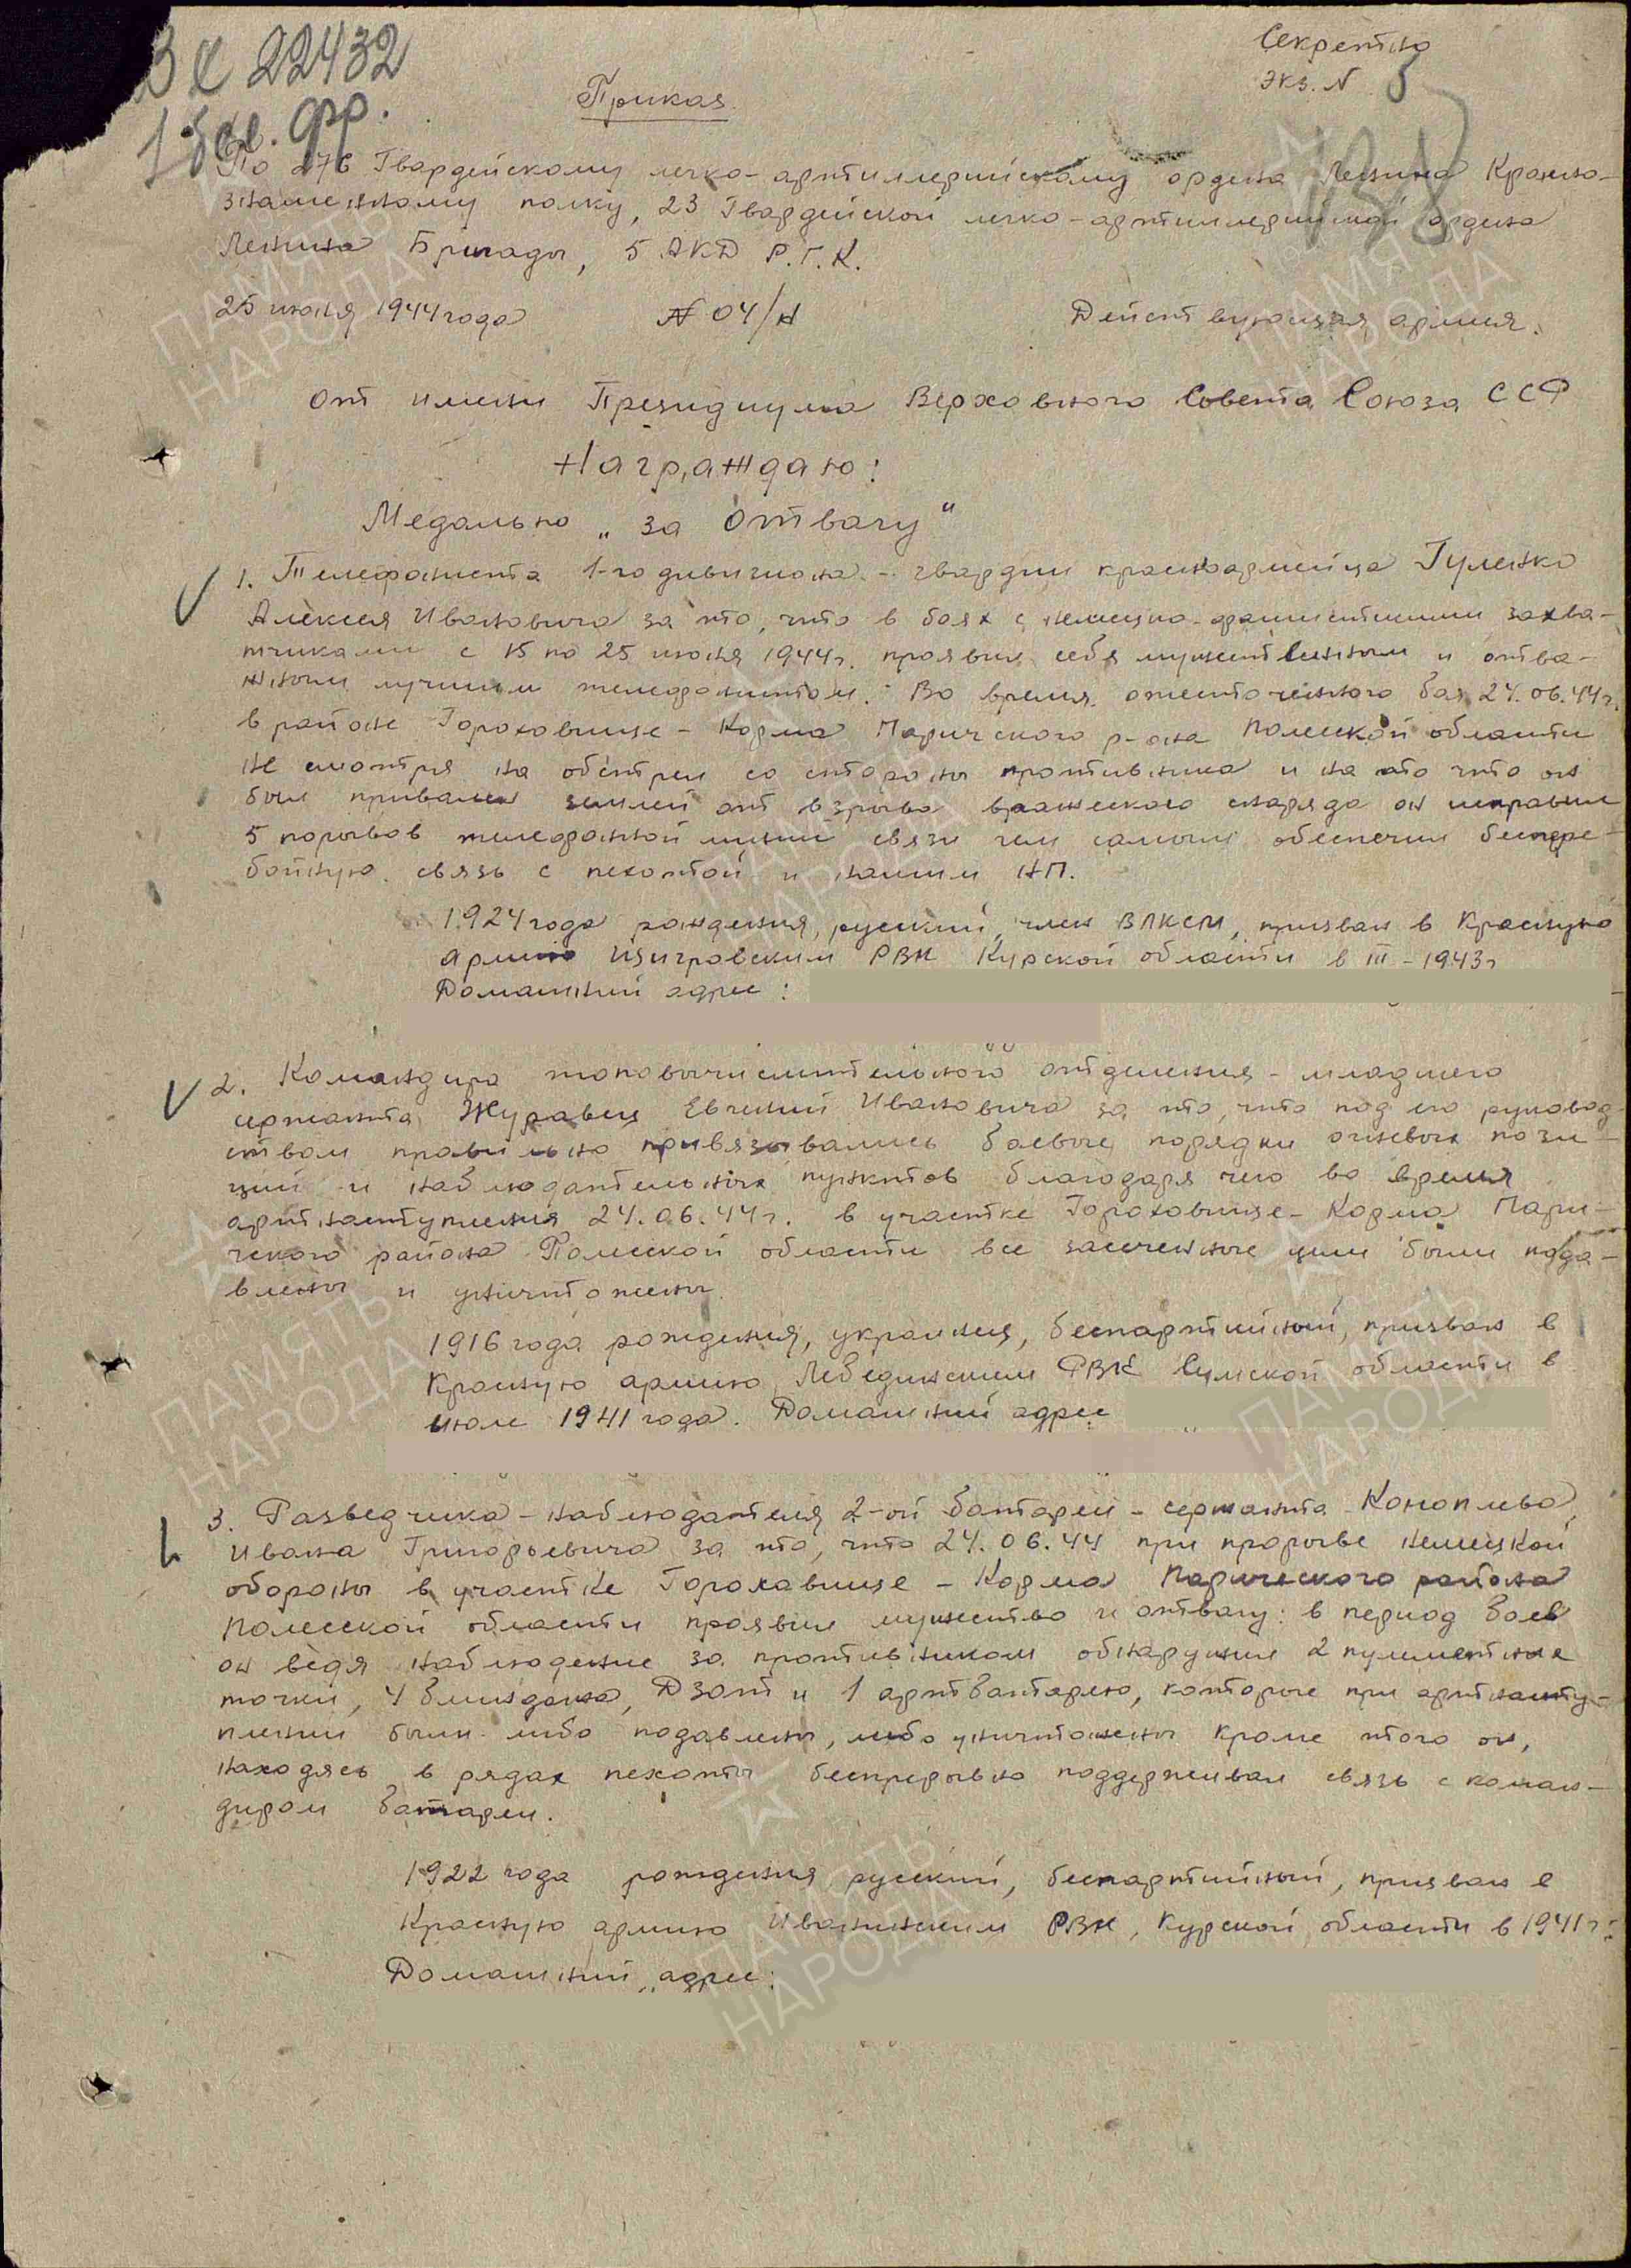 Вх 22432
Секретно
экз. N 5
Приказ
По 276 Гвардейскому легко-артиллерийскому ордена Ленина Красно-
знаменному полку, 23 Гвардейской легко-артиллерийской ордена
Ленина Бригады, 5 АКД Р.Г.К.
25 июня 1944 года N 04/н Действующая армия.
От имени Президиума Верховного Совета Союза ССР
Награждаю:
Медалью „за отвагу"
1. Телефониста 1-го дивизиона - гвардии красноармейца Гуленко
Алексея Ивановича за то, что в боях с немецко-фашистскими захва-
тчиками с 15 по 25 июня 1944г. проявил себя мужественным и отва-
жным лучшим телефонистом. Во время ожесточенного боя 24.06.44г.
в районе Гороховище - Корма Паричского р-она Полесской области
не смотря на обстрел со стороны противника и на то что он
был привален землей от взрыва вражеского снаряда он исправил
5 порывов телефонной линии связи чем самым обеспечил беспере-
бойную связь с пехотой и нашим НП.
1924 года рождения, русский, член ВЛКСМ, призван в Красную
армию Щигровским РВК Курской области в III - 1943г
Домашний адрес:
2. Командира топовычислительного отделения - младшего
сержанта Журавец Евгений Ивановича за то, что под его руковод-
ством правильно привязывались боевые порядки огневых пози-
ций и наблюдательных пунктов благодаря чего во время
артнаступления 24.06.44г. в участке Гороховище - Корма Пари-
чского района Полесской области все засеченные цели были пода-
влены и уничтожены.
1916 года рождения, украинец, беспартийный, призван в
Красную армию Лебединским РВК Сумской области в
июле 1941 года. Домашний адрес
3. Разведчика - наблюдателя 2-ой батареи - сержанта Коноплева
Ивана Григорьевича за то, что 24.06.44 при прорыве немецкой
обороны в участке Горохавище - Корма Паричского района
Полесской области проявил мужество и отвагу: в период боев
он ведя наблюдение за противником обнаружил 2 пулеметные
точки, 4 блиндажа, Дзот и 1 артбатарею, которые при артнасту-
плении были либо подавлены, либо уничтожены кроме этого он,
находясь в рядах пехоты беспрерывно поддерживал связь с коман-
диром батареи.
1922 года рождения, русский, беспартийный, призван в
Красную армию Иванинским РВК, Курской области в 1941г.
Домашний адрес:
ПАМЯТЬ
НАРОДА